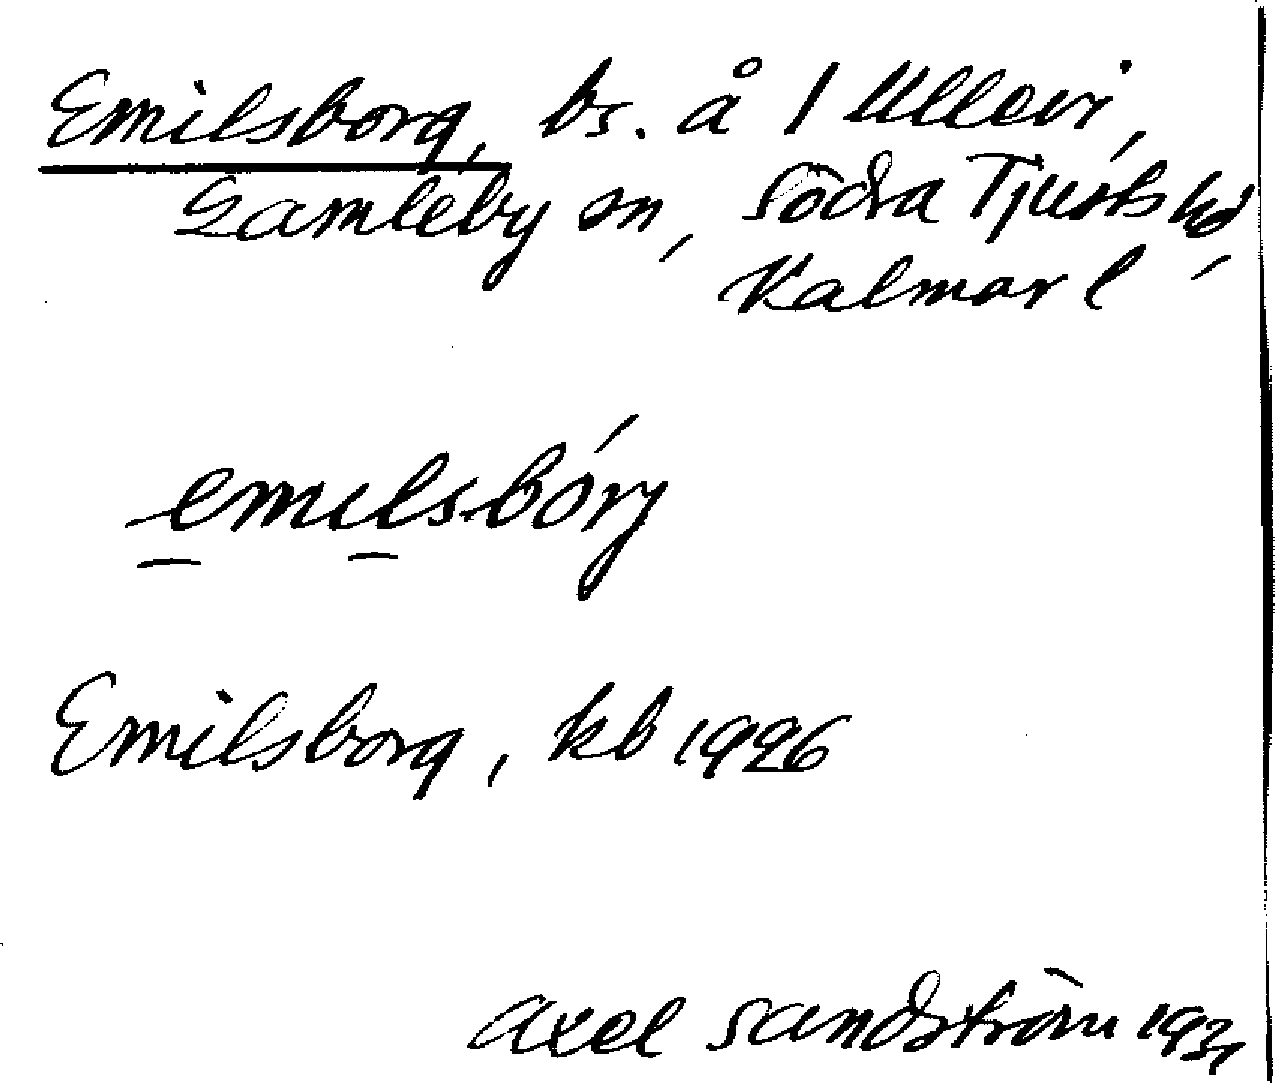 Emilsborg, bs. å 1 Ullevi,
Gamleby sn, Södra Tjusts hd,
Kalmar l
emilsbórj
Emilsborg, kb 1926
Axel Sandström 1931